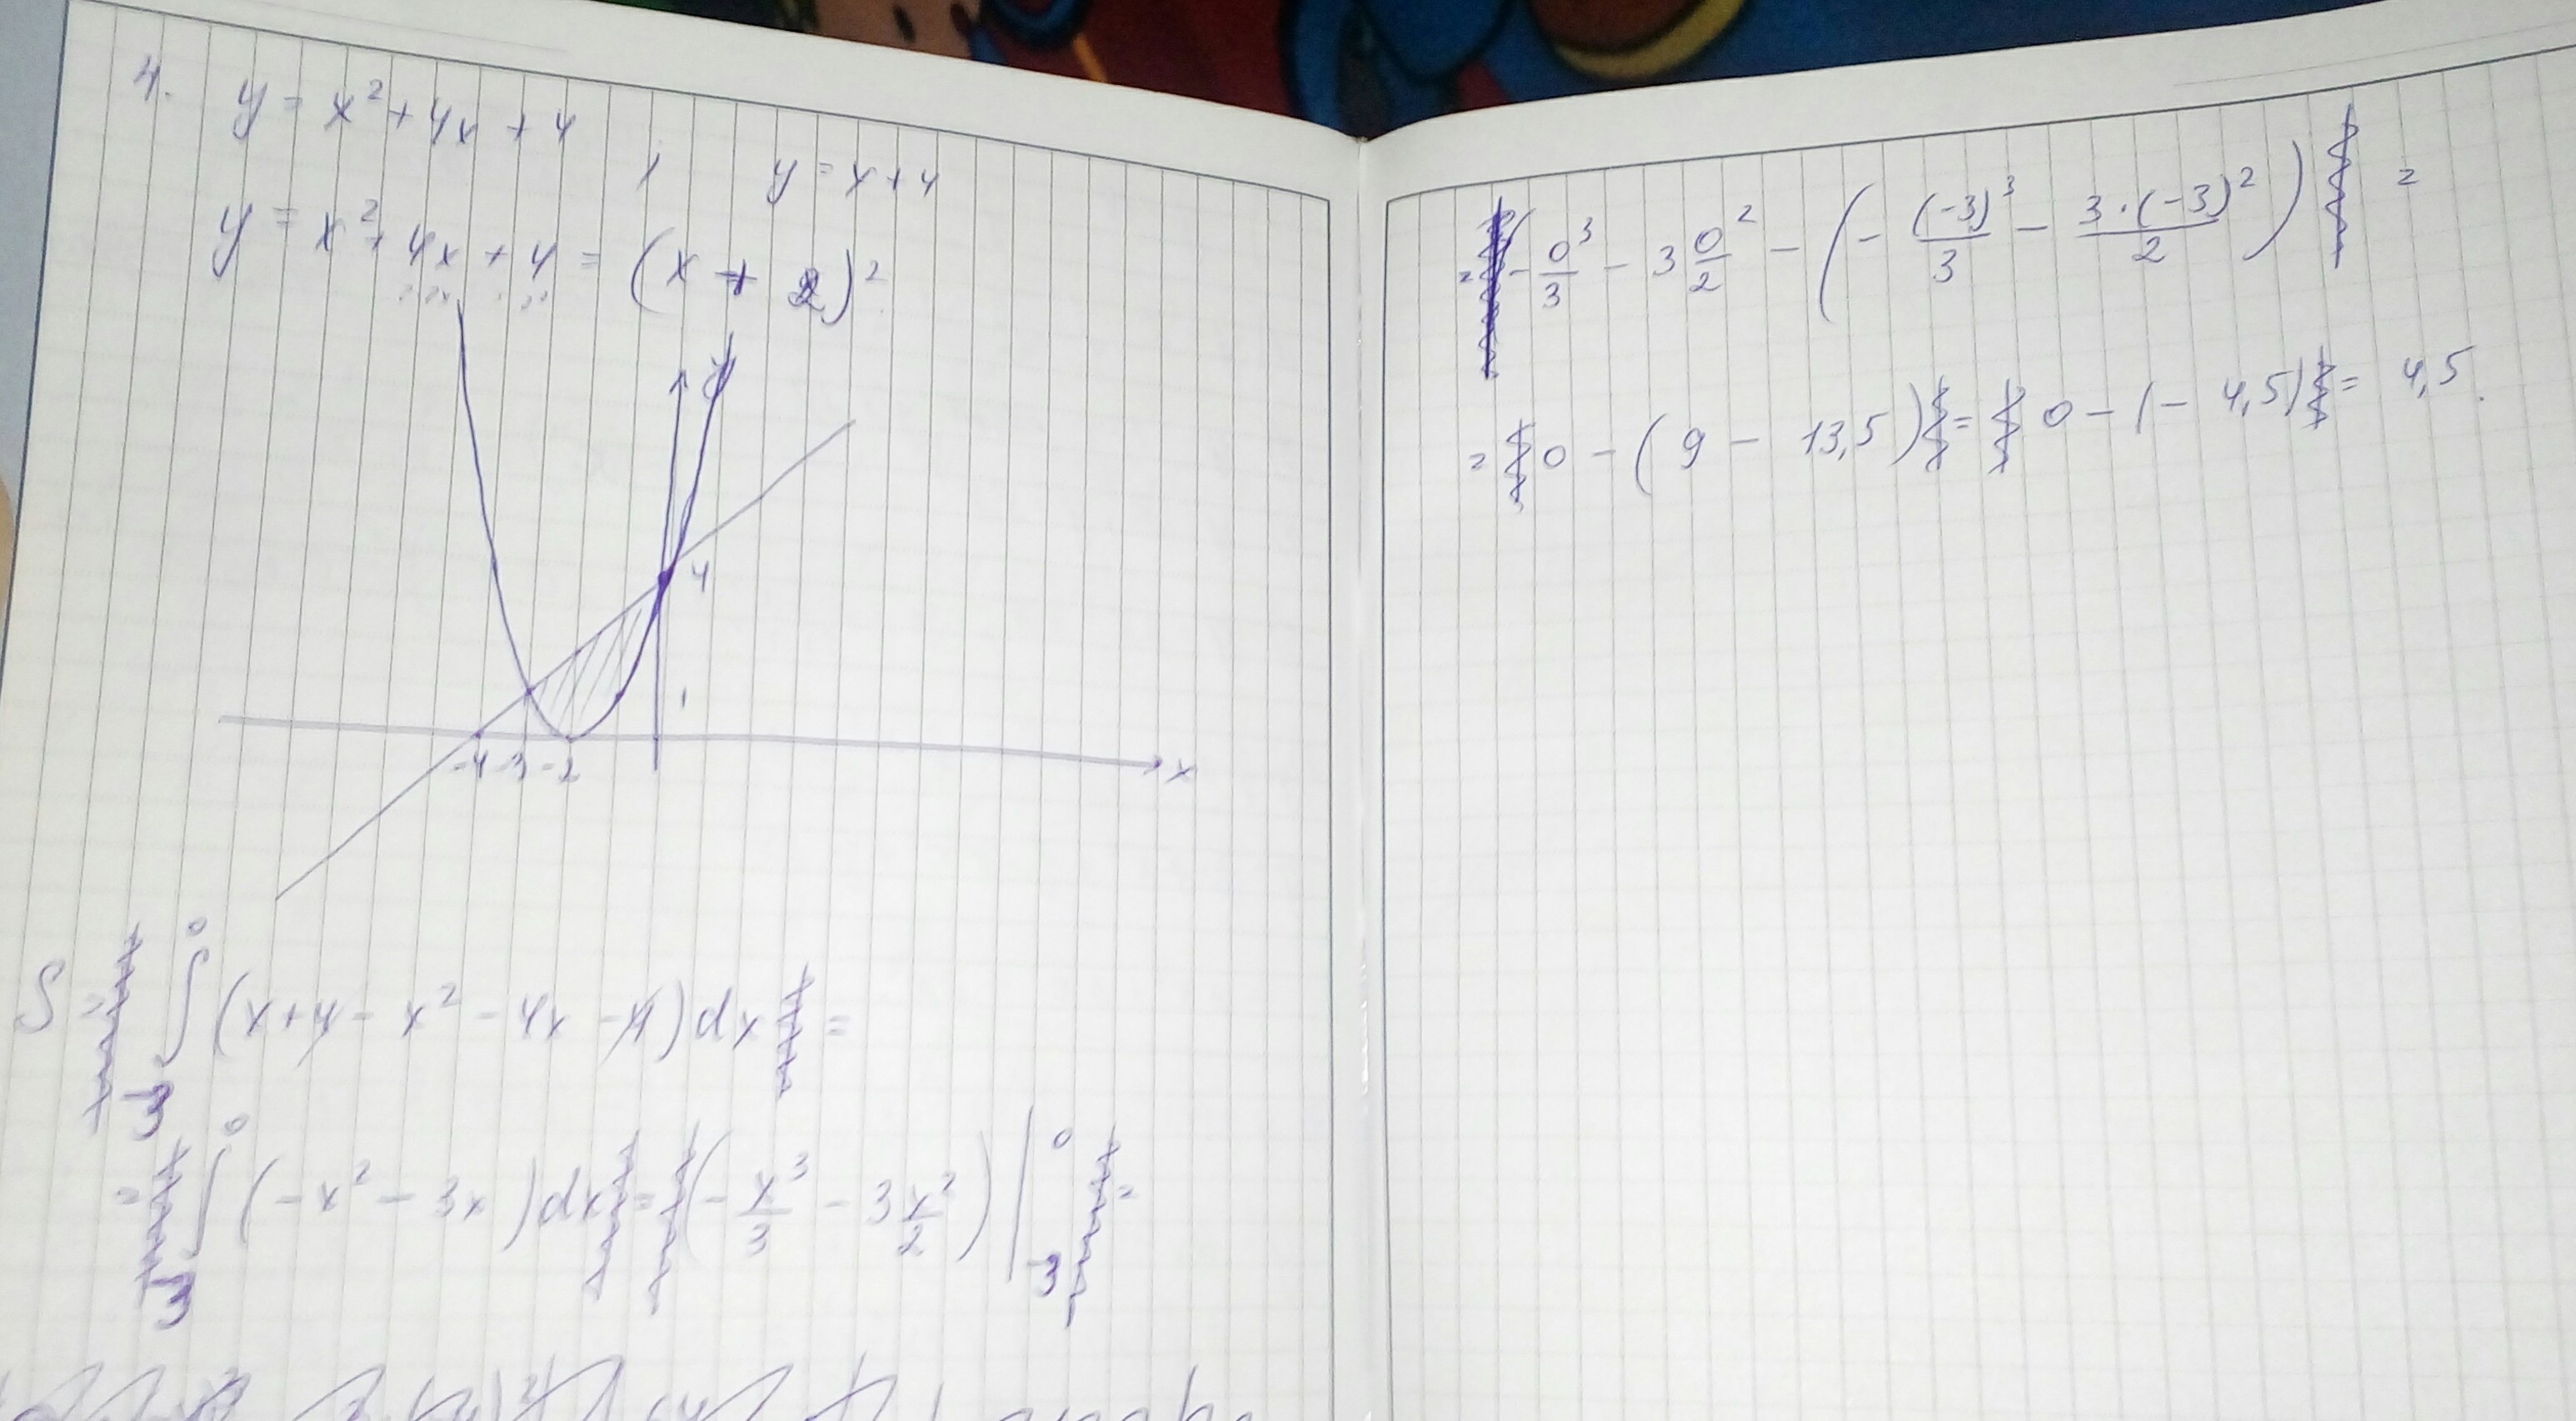 4. y = x² + 4x + 4 , y = x + 4
y = x² + 4x + 4 = (x + 2)²
y
4
1
-4 -3 -2
x
S = ∫₋₃⁰ (x + 4 - x² - 4x - 4) dx =
= ∫₋₃⁰ (-x² - 3x) dx = (- x³/3 - 3 x²/2) |₋₃⁰ =
= (- 0³/3 - 3 0²/2 - (- (-3)³/3 - 3·(-3)²/2) =
= 0 - (9 - 13,5) = 0 - (- 4,5) = 4,5.